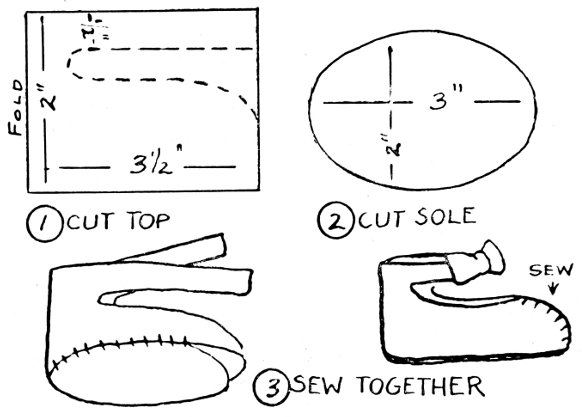 FOLD
2"
3½"
3"
2"
① CUT TOP
② CUT SOLE
SEW
③ SEW TOGETHER